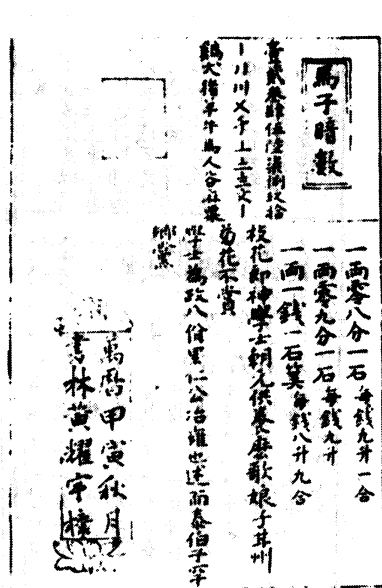 馬子暗數
壹貳叁肆伍陸柒捌玖拾
〡〢〣〤〥〦〧〨〩
鷄犬猪羊牛馬人谷
一兩零八分一石每錢九升一合
一兩零九分一石每錢九升
一兩一錢一石算每錢八升九合
校花郎神學士
菊花不賞
學士為政八佾里仁公冶雍也述而泰伯子罕
鄉黨
萬曆甲寅秋月
書林黃耀宇梓